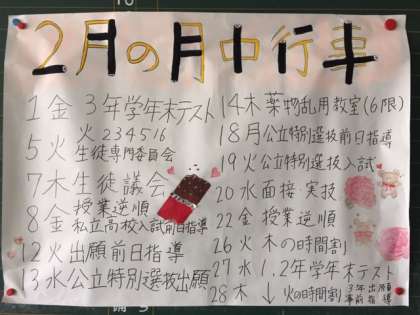 2月の月中行事
1金 3年学年末テスト
5火 火234516
生徒専門委員会
7木 生徒議会
8金 授業逆順
私立高校入試前日指導
12火 出願前日指導
13水 公立特別選抜出願
14木 薬物乱用教室(6限)
18月 公立特別選抜前日指導
19火 公立特別選抜入試
20水 面接・実技
22金 授業逆順
26火 木の時間割
27水 1,2年学年末テスト
28木 ↓ 火の時間割 3年出願
事前指導